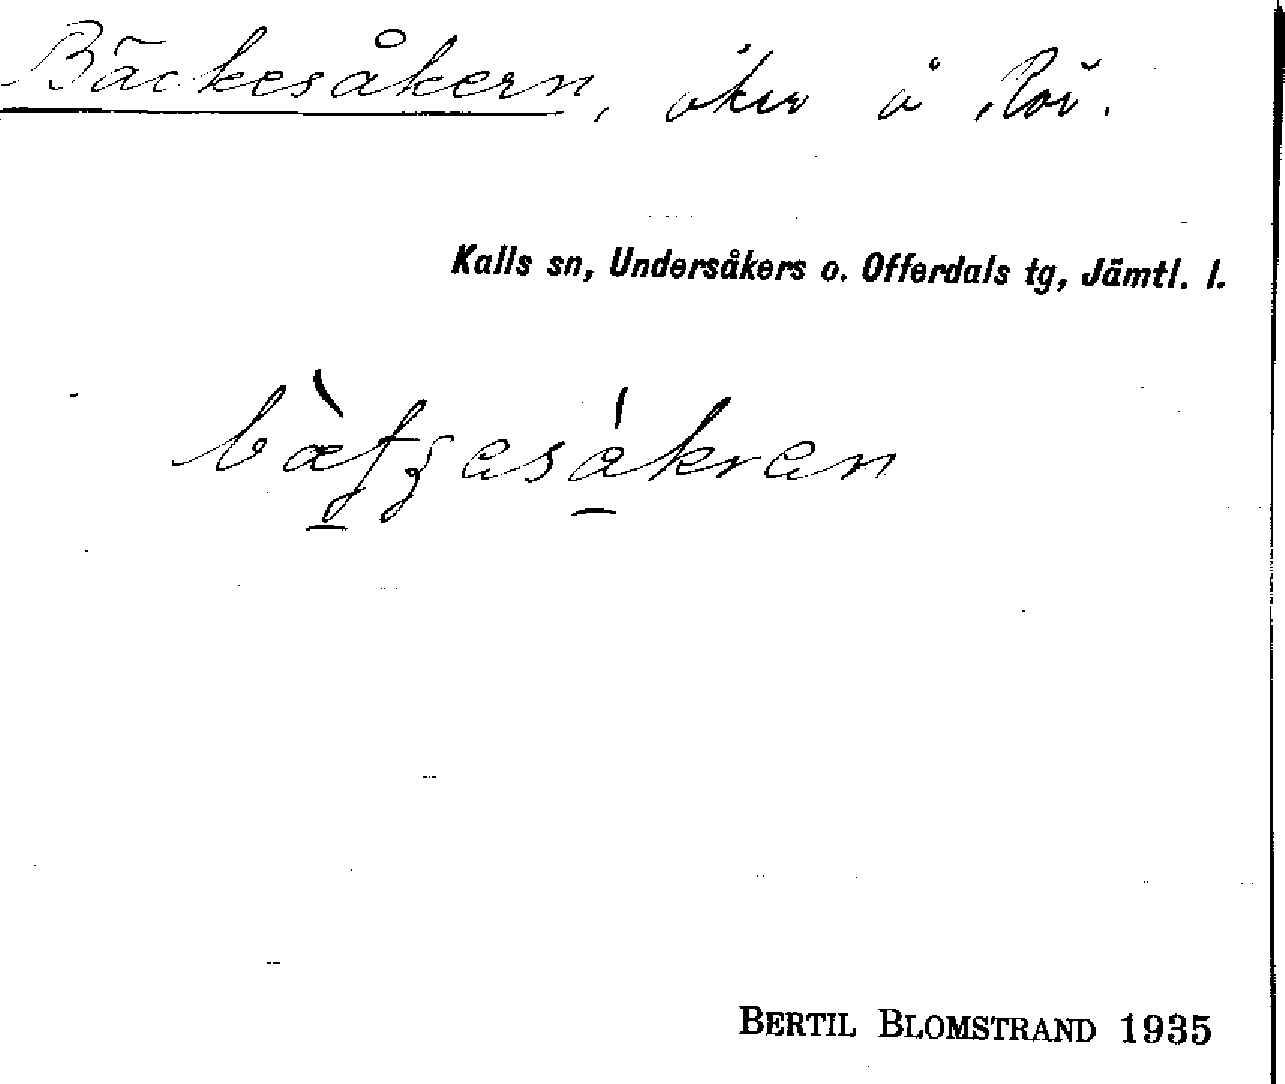 Bäckesåkern, åker å Röi.
Kalls sn, Undersåkers o. Offerdals tg, Jämtl. l.
BERTIL BLOMSTRAND 1935